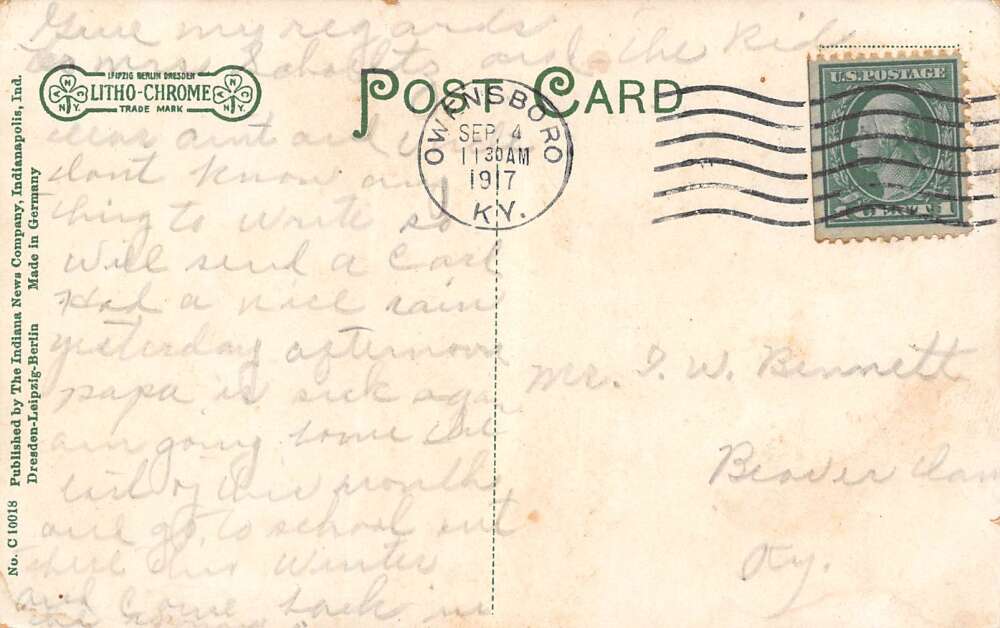 Give my regards
to Mrs Schultz and the kid
LEIPZIG BERLIN DRESDEN
LITHO-CHROME
TRADE MARK
POST CARD
OWENSBORO
SEP 4
11 30AM
1917
KY.
U.S. POSTAGE
1 CENT 1
dear aunt and
dont know any
thing to write so
will send a Card
Had a nice rain
yesterday afternoon
papa is sick again
am going home the
last of this month
and go to school out
there this Winter
and Come back in
Mr. T. W. Bennett
Beaver Dam
Ky.
No. C 10018 Published by The Indiana News Company, Indianapolis, Ind.
Dresden-Leipzig-Berlin Made in Germany